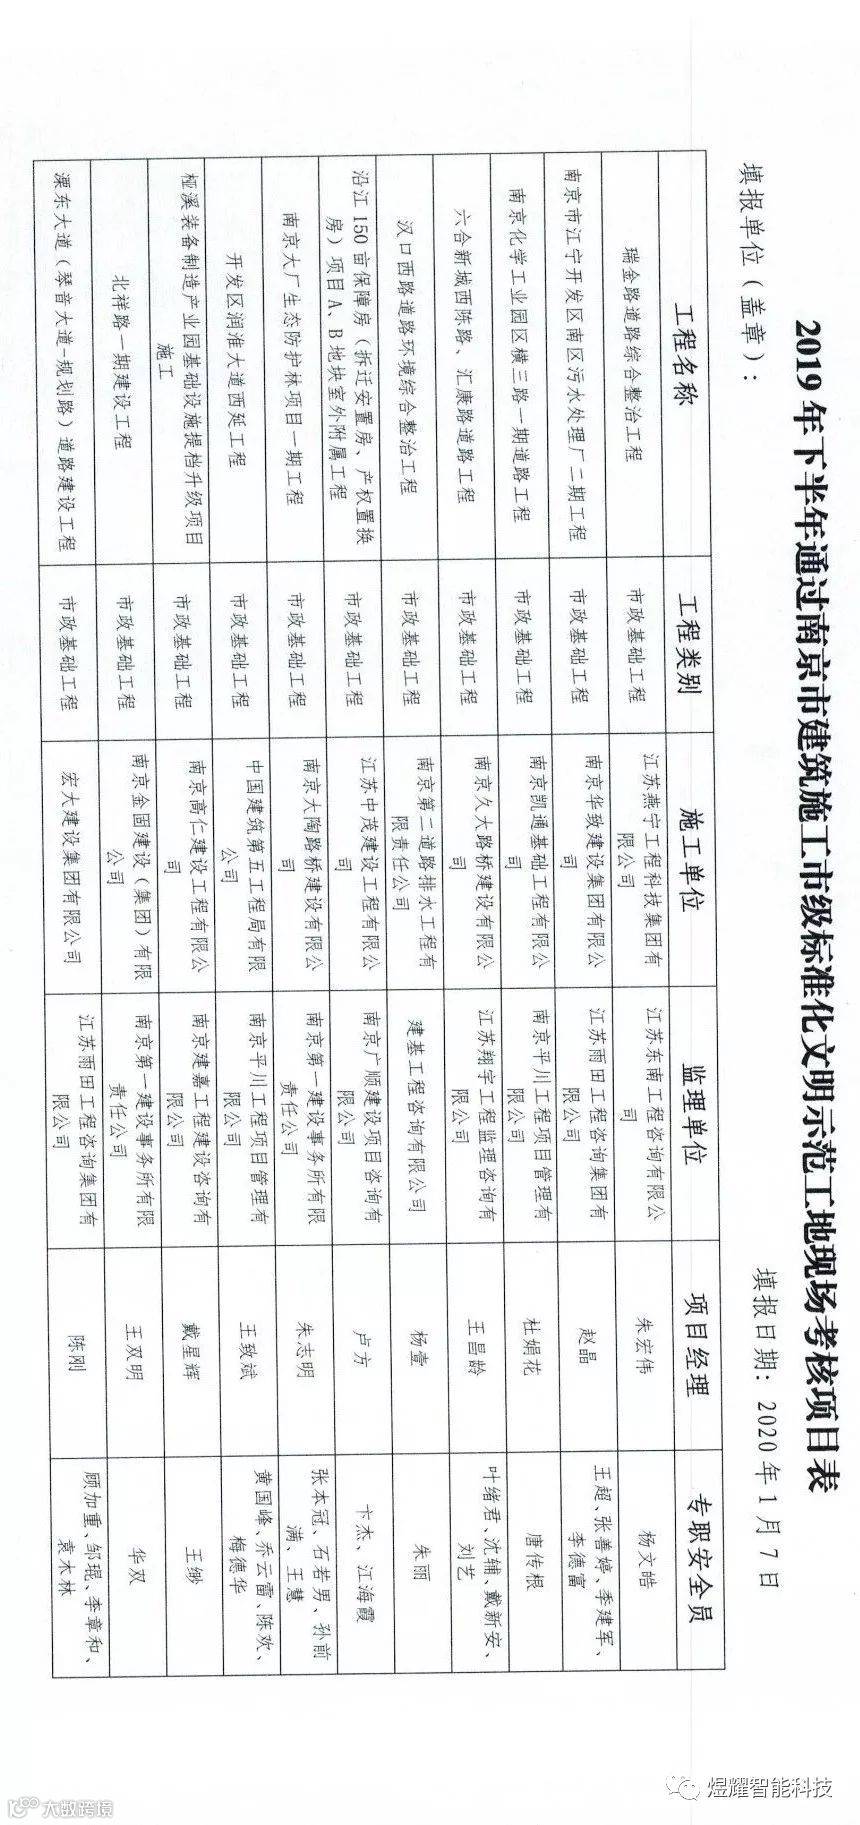 2019年下半年通过南京市建筑施工市级标准化文明示范工地现场考核项目表
填报单位（盖章）：
填报日期：2020年1月7日
工程名称 工程类别 施工单位 监理单位 项目经理 专职安全员
瑞金路道路综合整治工程 市政基础工程 江苏燕宁工程科技集团有限公司 江苏东南工程咨询有限公司 朱宏伟 杨文皓
南京市江宁开发区南区污水处理厂二期工程 市政基础工程 南京华致建设集团有限公司 江苏雨田工程咨询集团有限公司 赵晶 王超、张善婷、季建军、李德富
南京化学工业园区横三路一期道路工程 市政基础工程 南京凯通基础工程有限公司 南京平川工程项目管理有限公司 杜娟花 唐传根
六合新城西陈路、汇康路道路工程 市政基础工程 南京久大路桥建设有限公司 江苏翔宇工程监理咨询有限公司 王昌龄 叶绪君、沈辅、戴新安、刘艺
汉口西路道路环境综合整治工程 市政基础工程 南京第二道路排水工程有限责任公司 建基工程咨询有限公司 杨壹 朱丽
沿江150亩保障房（拆迁安置房、产权置换房）项目A、B地块室外附属工程 市政基础工程 江苏中茂建设工程有限公司 南京广顺建设项目咨询有限公司 卢方 卞杰、江海霞
南京大厂生态防护林项目一期工程 市政基础工程 南京大陶路桥建设有限公司 南京第一建设事务所有限责任公司 朱志明 张本冠、石若男、孙前满、王慧
开发区润淮大道西延工程 市政基础工程 中国建筑第五工程局有限公司 南京平川工程项目管理有限公司 王致斌 黄国峰、乔云雷、陈欢、梅德华
桠溪装备制造产业园基础设施提档升级项目施工 市政基础工程 南京高仁建设工程有限公司 南京建嘉工程建设咨询有限公司 戴星辉 王缈
北祥路一期建设工程 市政基础工程 南京金固建设（集团）有限公司 南京第一建设事务所有限责任公司 王双明 华双
溧东大道（琴音大道-规划路）道路建设工程 市政基础工程 宏大建设集团有限公司 江苏雨田工程咨询集团有限公司 陈刚 顾加重、邹琨、李章和、袁木林
煜耀智能科技
大数跨境